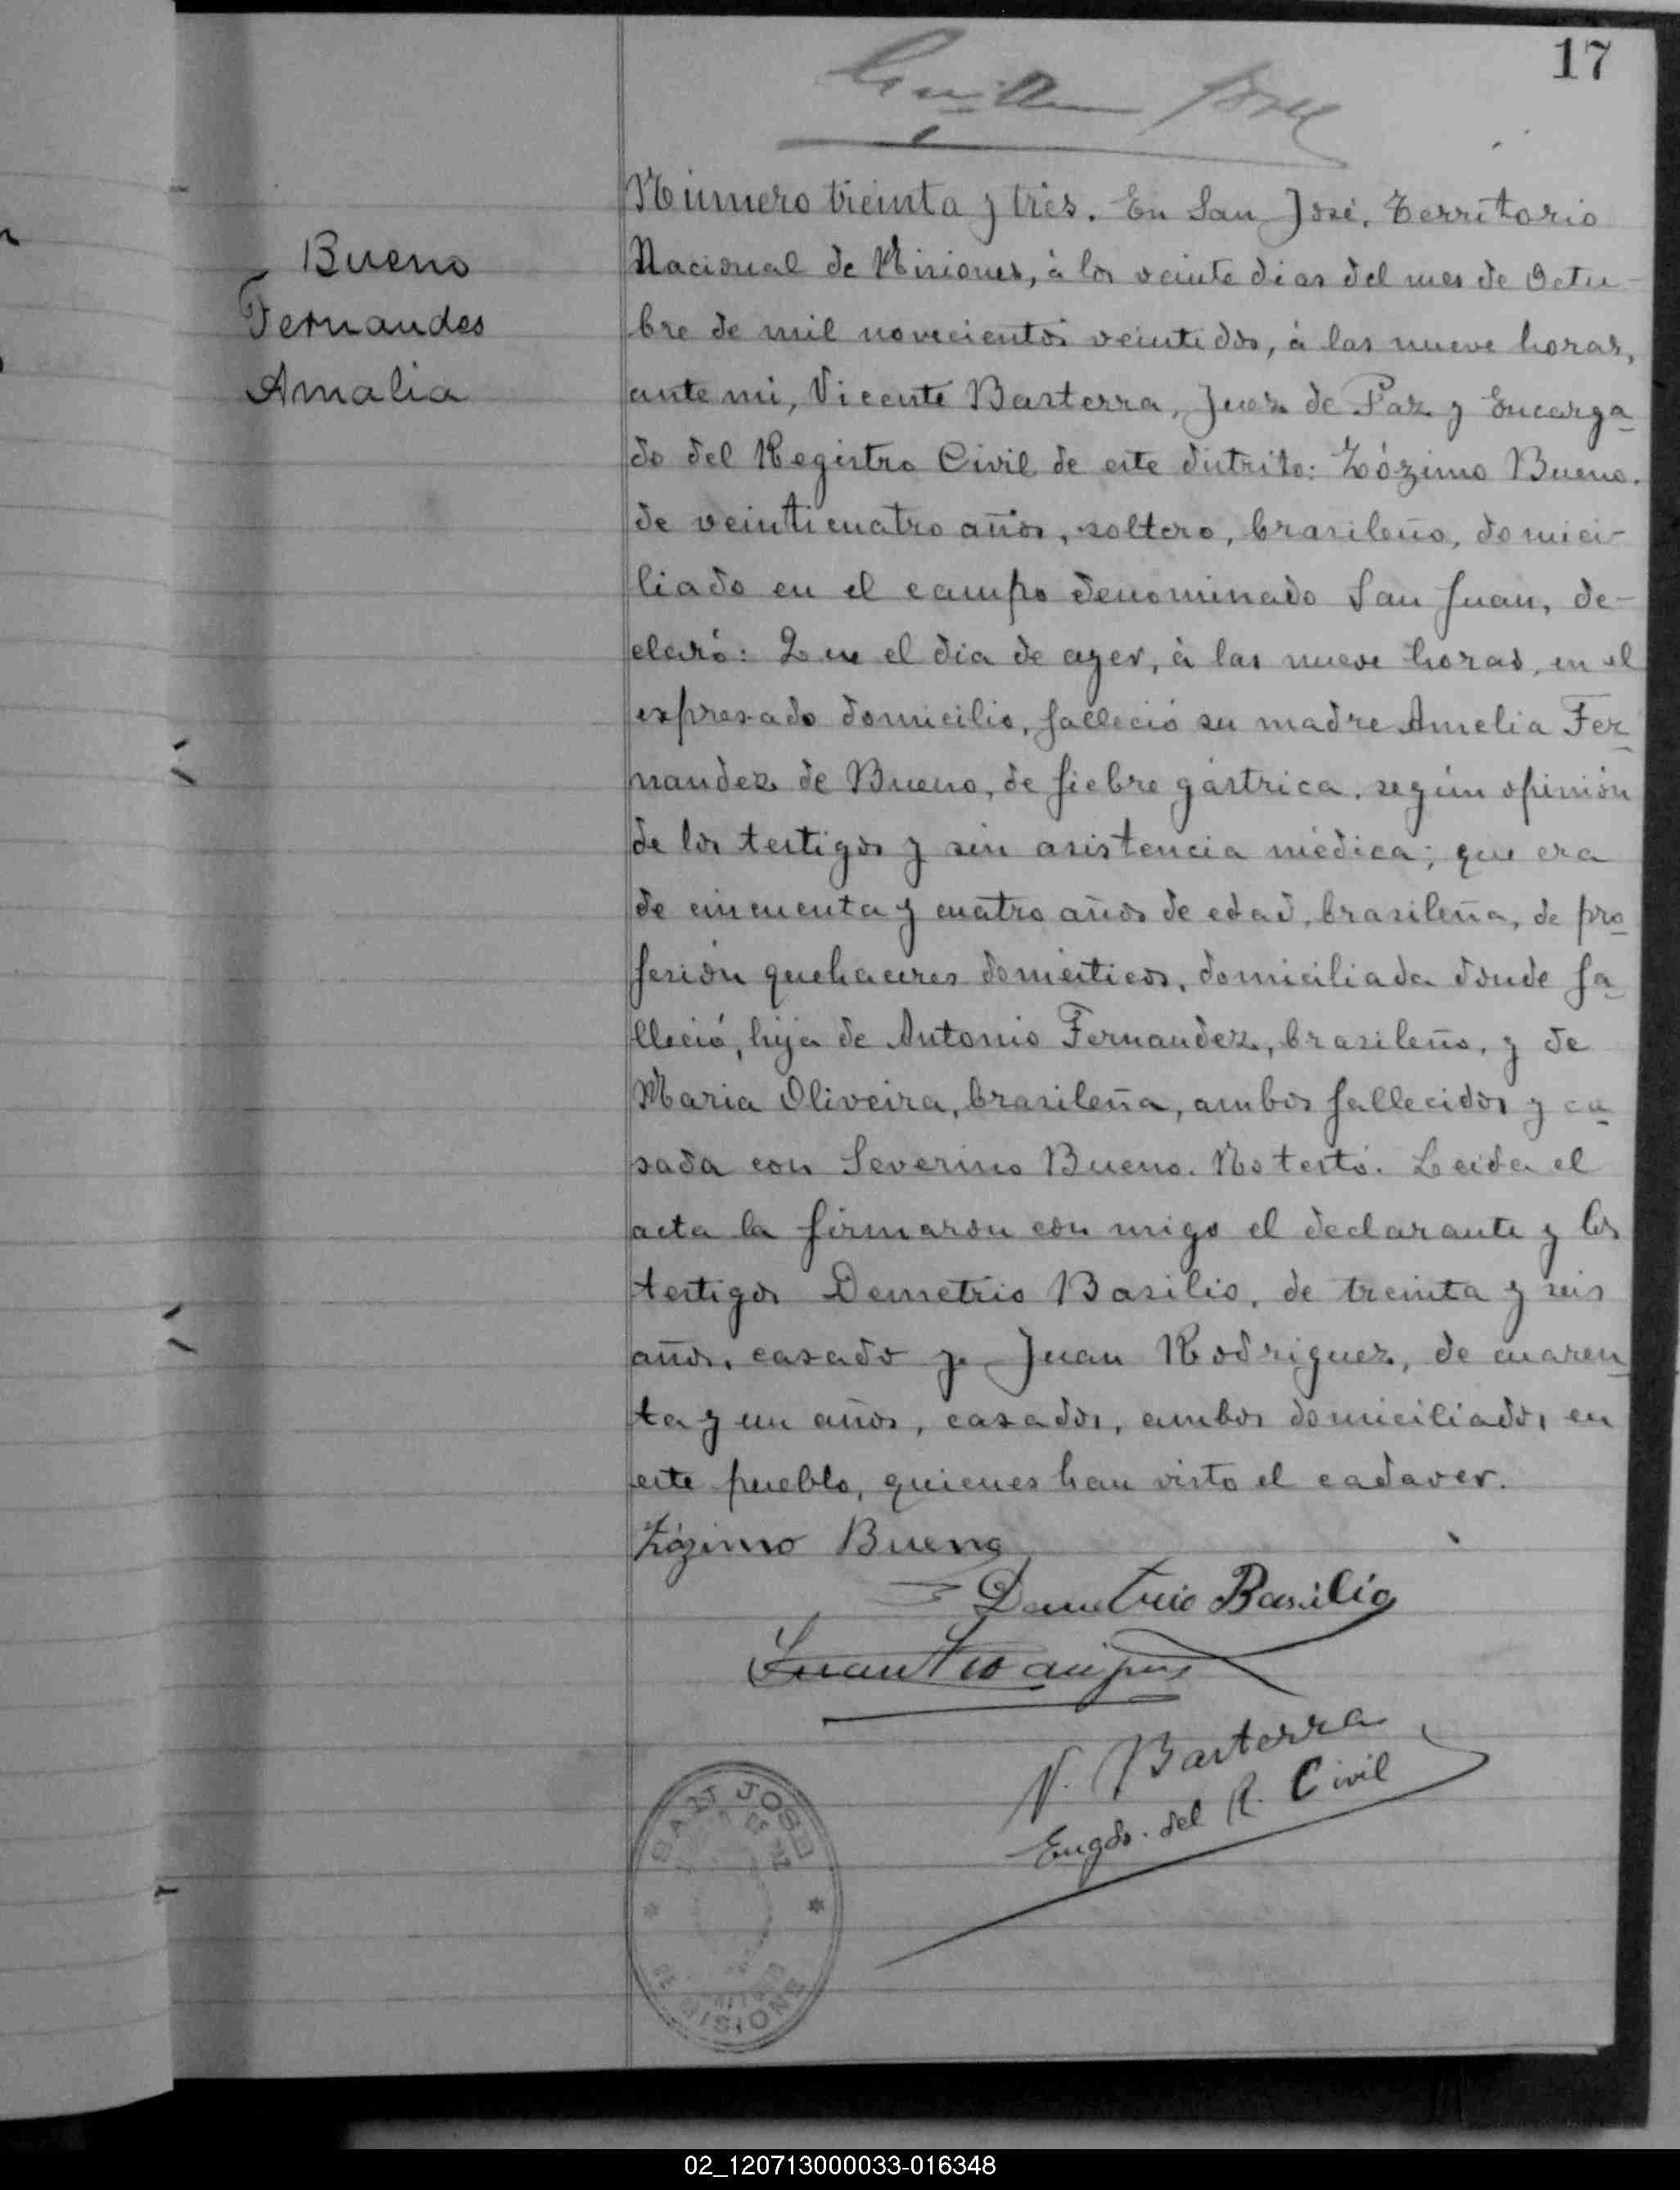 17
Bueno
Fernandes
Amalia
Número treinta y tres. En San José, Territorio
Nacional de Misiones, á los veinte dias del mes de Octu-
bre de mil novecientos veintidos, á las nueve horas,
ante mi, Vicente Basterra, Juez de Paz y Encarga-
do del Registro Civil de este distrito: Zózimo Bueno.
de veinticuatro años, soltero, brasileño, domici-
liado en el campo denominado San Juan, de-
claró: Que el dia de ayer, á las nueve horas, en el
expresado domicilio, falleció su madre Amelia Fer-
nandez de Bueno, de fiebre gástrica, según opinión
de los testigos y sin asistencia médica; que era
de cincuenta y cuatro años de edad, brasileña, de pro-
fesión quehaceres domésticos, domiciliada donde fa-
lleció, hija de Antonio Fernandez, brasileño, y de
Maria Oliveira, brasileña, ambos fallecidos y ca-
sada con Severino Bueno. No testó. Leida el
acta la firmaron con migo el declarante y los
testigos Demetrio Basilio, de treinta y seis
años, casado y Juan Rodriguez, de cuaren-
ta y un años, casados, ambos domiciliados en
este pueblo, quienes han visto el cadaver.
Zózimo Bueno
Demetrio Basilio
Juan
V. Basterra
Engdo. del R. Civil
SAN JOSE
MISIONES
02_120713000033-016348